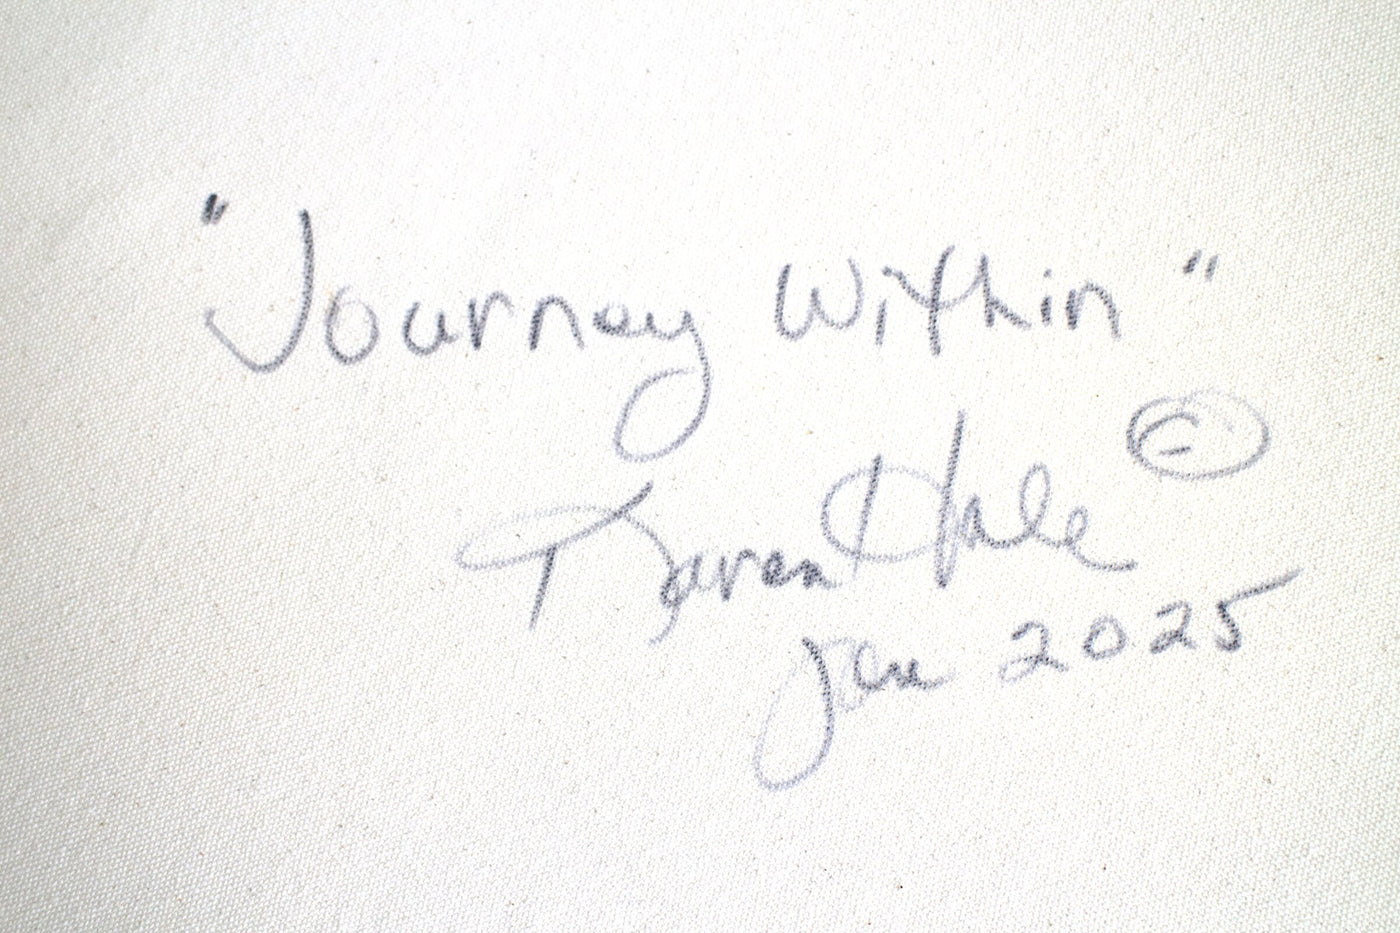 "Journey Within"
Karen Hale ©
Jan 2025